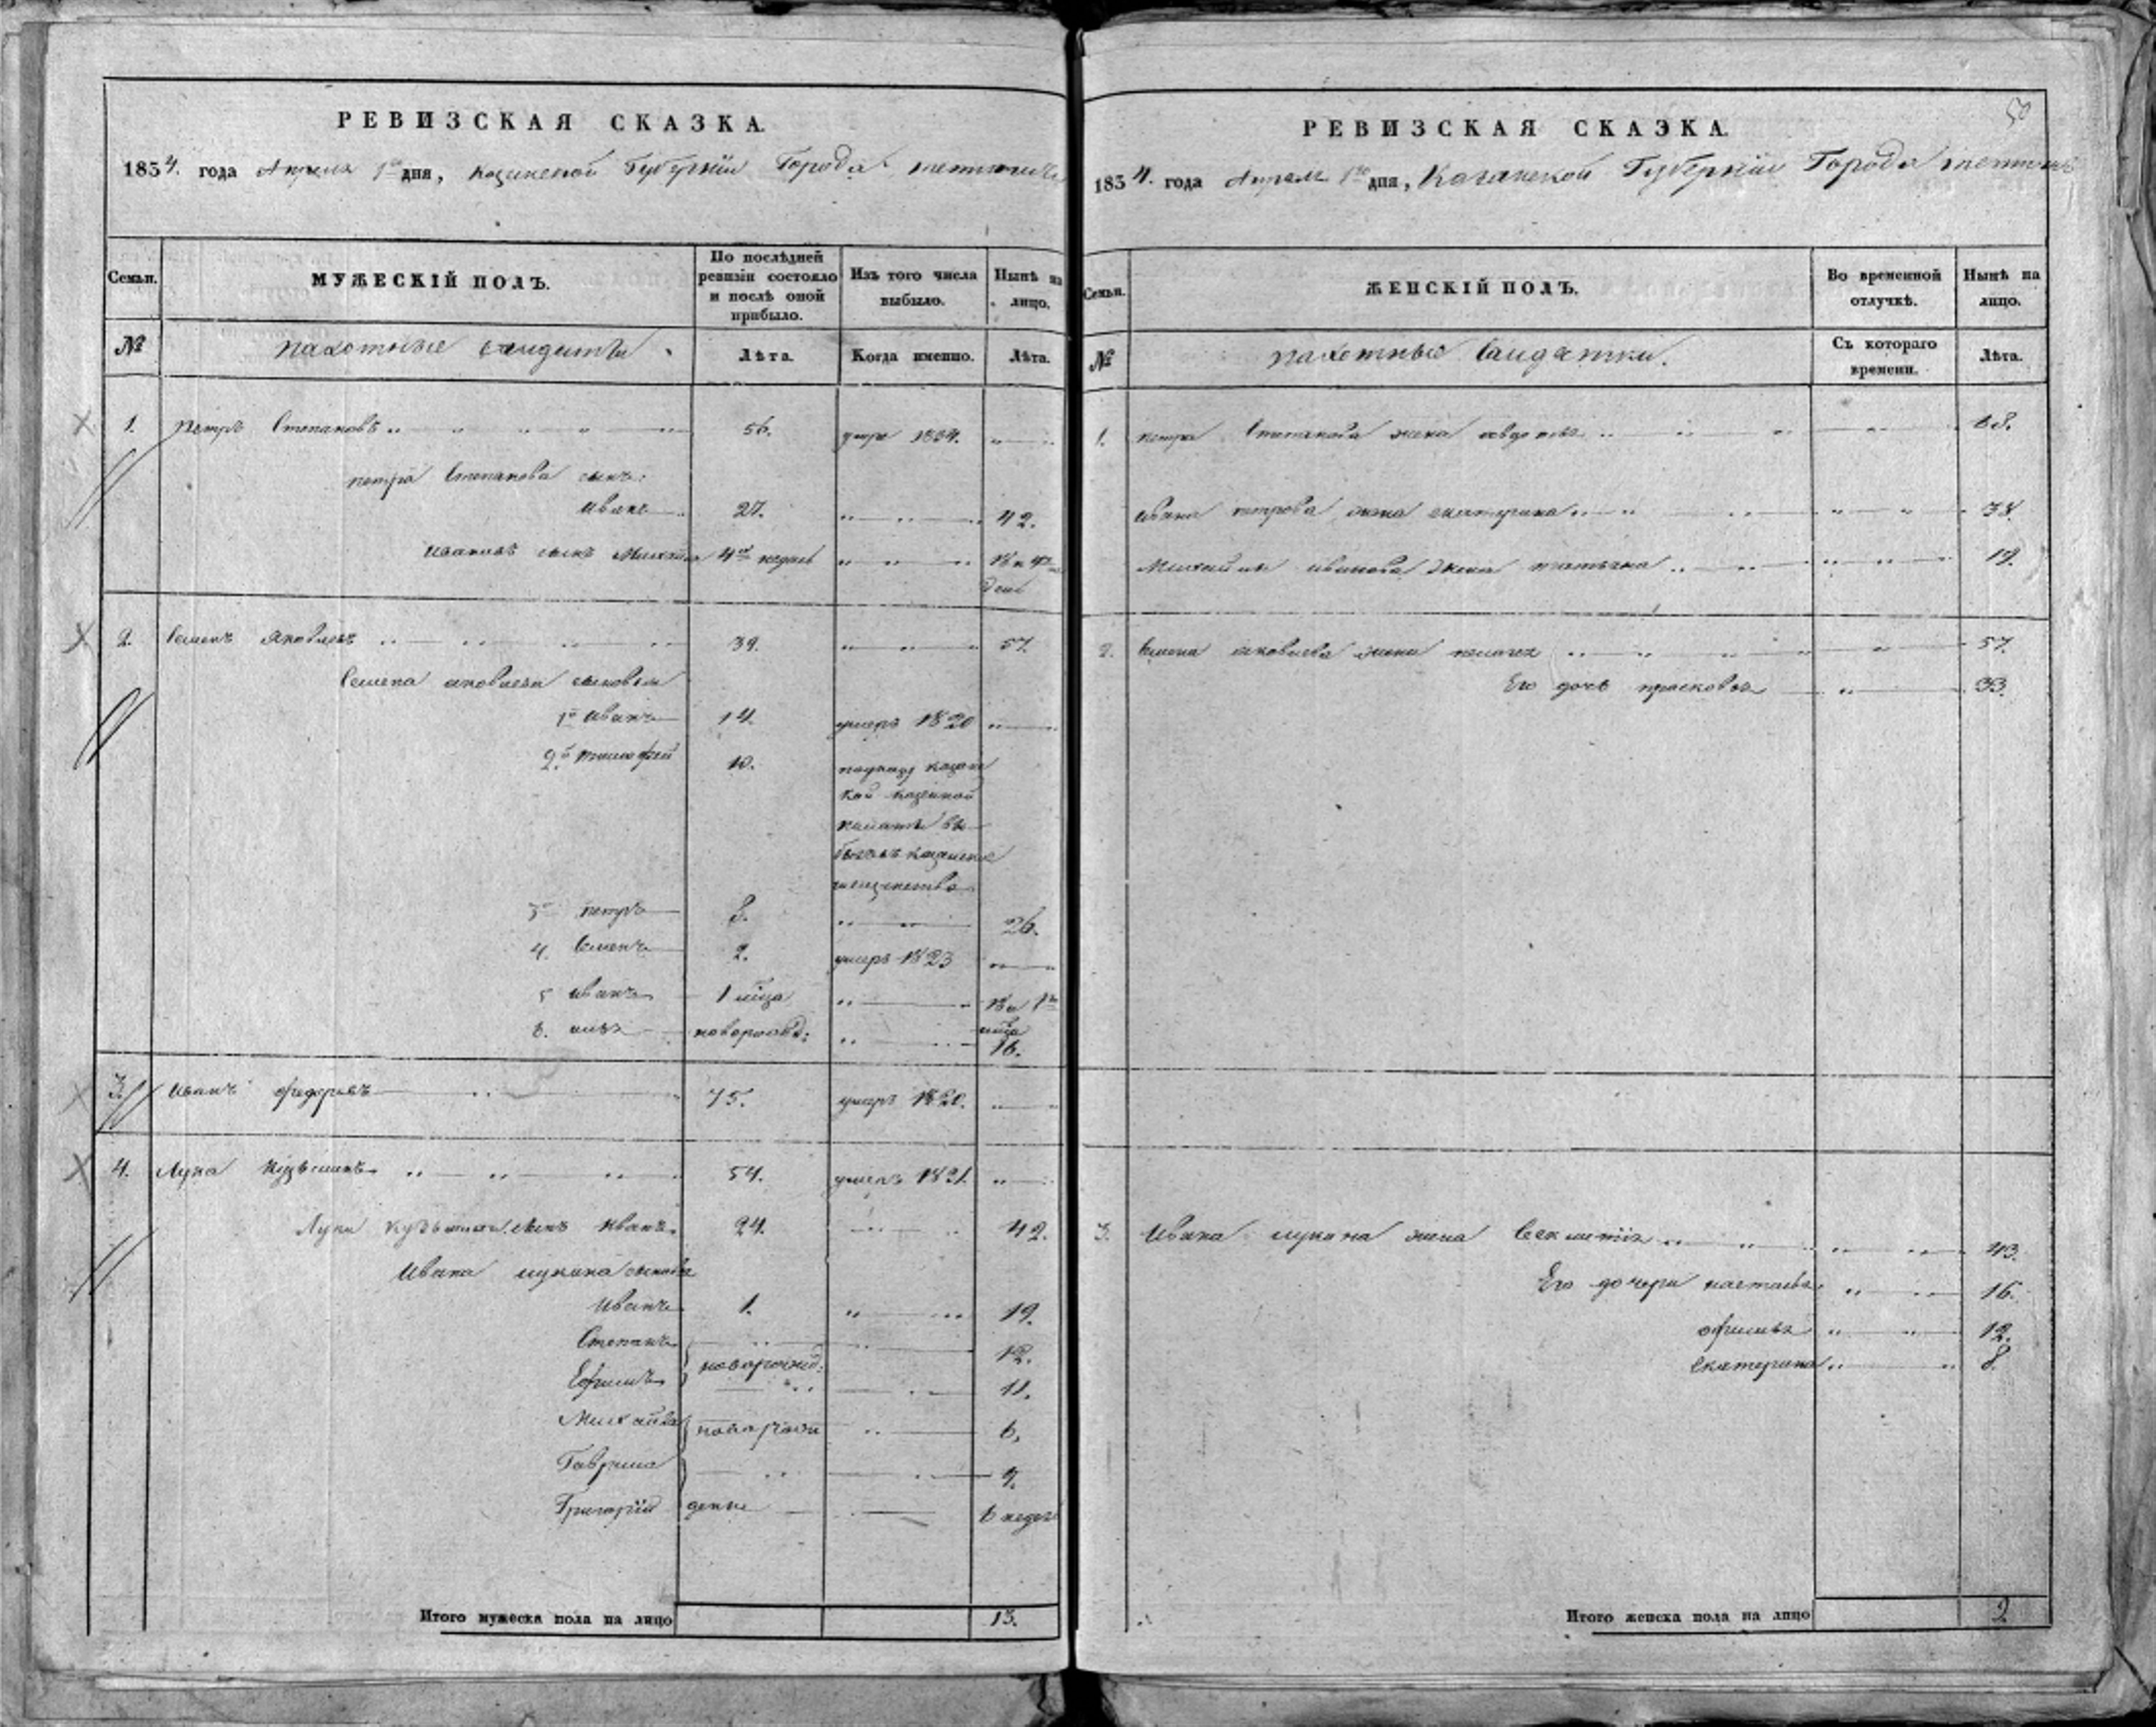 РЕВИЗСКАЯ СКАЗКА.
1834. года Апреля 1го дня, Казанской Губернии Города
Семьи.
МУЖЕСКІЙ ПОЛЪ.
По послѣдней ревизіи состояло и послѣ оной прибыло.
Изъ того числа выбыло.
Нынѣ на лицо.
№
пахотные салдаты
Лѣта.
Когда именно.
Лѣта.
1. Петръ Степановъ 56. умре 1834.
петра Степанова сынъ:
иванъ 27. 42.
ивановъ сынъ Михайла 4 недель 18 и 4
2. Семенъ яковлевъ 39. 57.
Семена яковлева сыновья
1й иванъ 14. умеръ 1820
2й тимофей 10. поуказу казанс
кой казенной
палаты вы
шеством
3 петръ 8. 26.
4. Семенъ 2. умеръ 1823
5 иванъ 1 мѣца 18 и 1
мѣца
6. новорожд: 16.
3. иванъ федоровъ 75. умеръ 1820.
4. Лука Кузьминъ 54. умеръ 1821.
Луки кузьмина сынъ иванъ 24. 42.
Ивана лукина сыновья
иванъ 1. 19.
Степанъ 12.
новорожд:
Ефимъ 11.
Михайла новорож 6.
Гаврила 7.
Григорій денне 6 недель
Итого мужеска пола на лицо 13.
50
РЕВИЗСКАЯ СКАЗКА.
1834. года Апреля 1го дня, Казанской Губернии Города
Семьи.
ЖЕНСКІЙ ПОЛЪ.
Во временной отлучкѣ.
Нынѣ на лицо.
№
пахотные салдатки.
Съ котораго времени.
Лѣта.
1. петра Степанова жена авдотья 68.
ивана петрова жена екатерина 38.
Михайлы иванова жена татьяна 19.
2. Семена яковлева жена пелагея 57.
Его дочь прасковья 33.
3. Ивана лукина жена 43.
Его дочери настасья 16.
афимья 12.
екатерина 8.
Итого женска пола на лицо 9